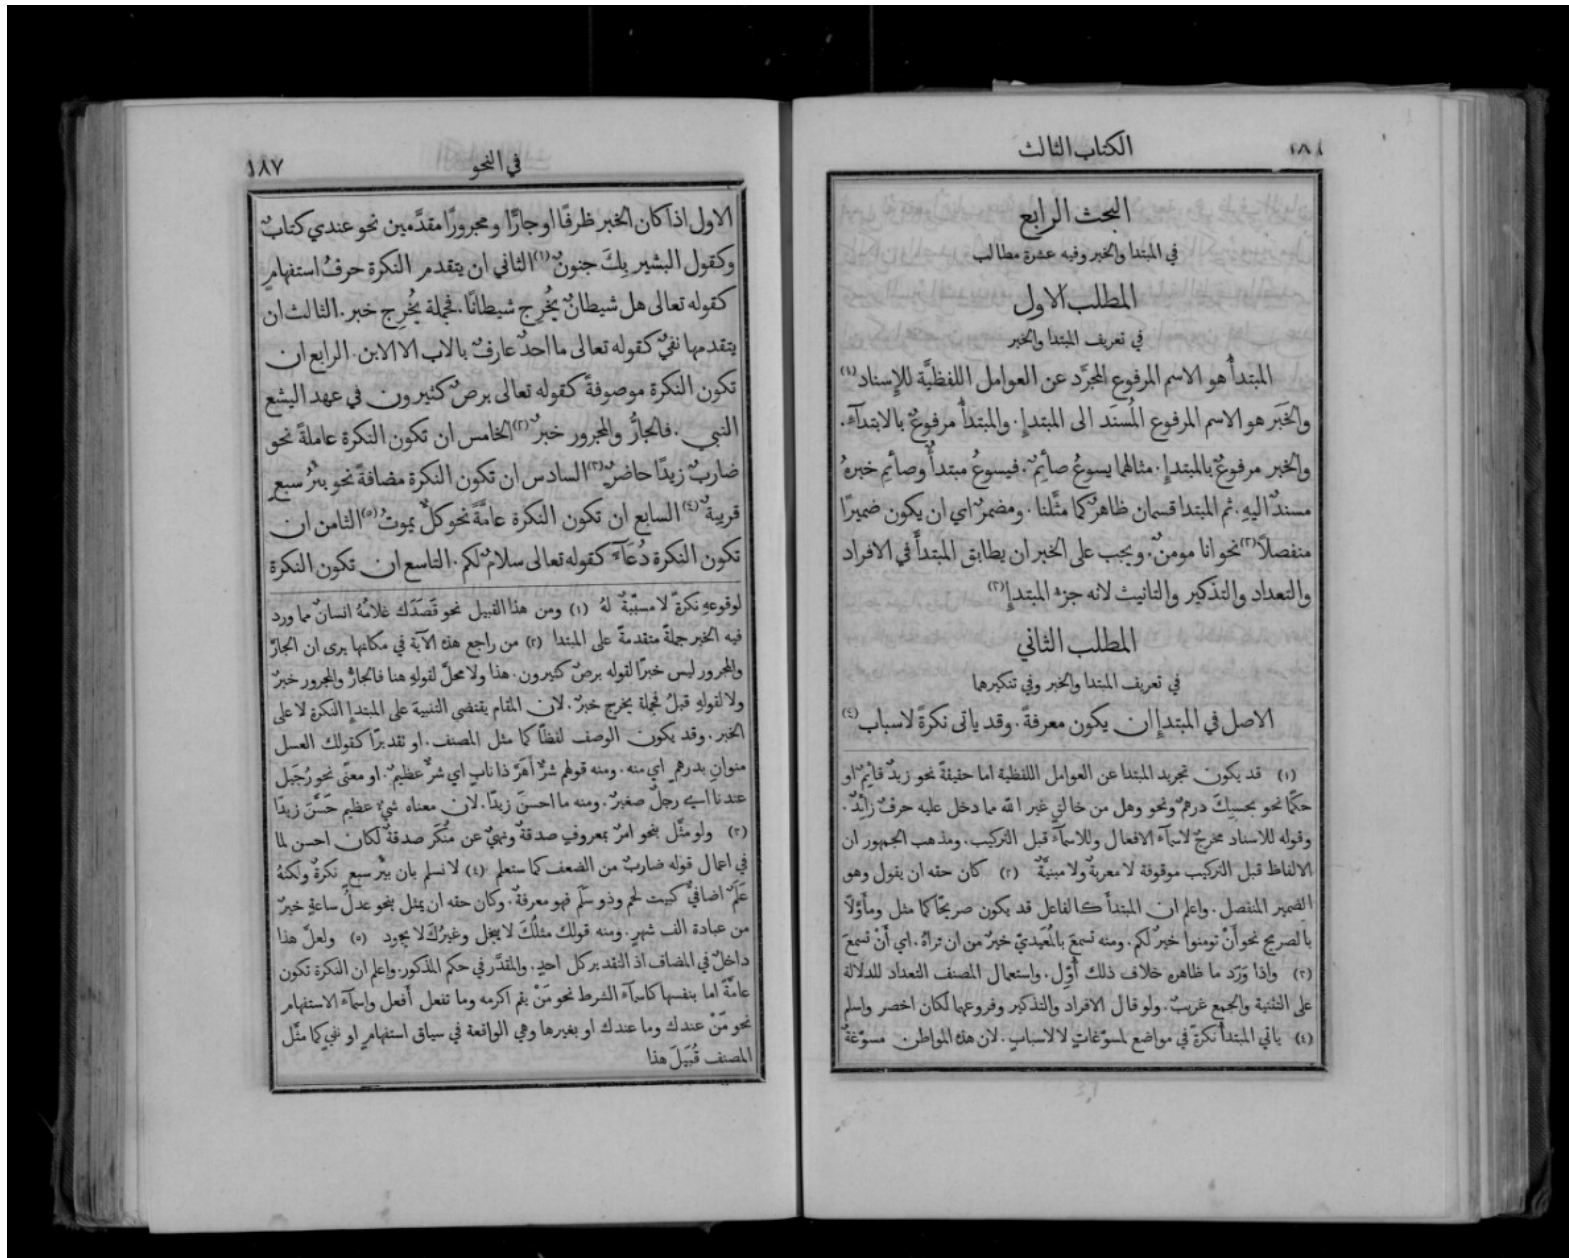 الكتاب الثالث
البحث الرابع
في المبتدا والخبر وفيه عشرة مطالب
المطلب الاول
في تعريف المبتدا والخبر
المبتدأُ هو الاسم المرفوع المجرَّد عن العوامل اللفظيَّة للإسناد (١)
والخَبَر هو الاسم المرفوع المُسنَد الى المبتدإِ. والمبتدأُ مرفوعٌ بالابتدآءِ.
والخبر مرفوعٌ بالمبتدإِ. مثالهما يسوعُ صآئِمٌ. فيسوعُ مبتدأٌ وصآئِم خبرهُ
مسندٌ اليهِ. ثم المبتدا قسمان ظاهرٌ كما مثَّلنا. ومضمرٌ اي ان يكون ضميرًا
منفصلاً (٢) نحو انا مومنٌ. ويجب على الخبر ان يطابق المبتدأَ في الافراد
والتعداد والتذكير والتانيث لانه جزء المبتدإِ (٣)
المطلب الثاني
في تعريف المبتدا والخبر وفي تنكيرهما
الاصل في المبتدإِ ان يكون معرفةً. وقد ياتى نكرةً لاسباب (٤)
(١) قد يكون تجريد المبتدا عن العوامل اللفظية اما حقيقةً نحو زيدٌ قآئِمٌ او
حكمًا نحو بحسبِكَ درهمٌ ونحو وهل من خالقٍ غير الله مما دخل عليه حرفٌ زآئِدٌ.
وقوله للاسناد مخرجٌ لاسمآءِ الافعال وللاسمآءِ قبل التركيب. ومذهب الجمهور ان
الالفاظ قبل التركيب موقوفة لا معربةٌ ولا مبنيَّةٌ (٢) كان حقه ان يقول وهو
الضمير المنفصل. واعلم ان المبتدأَ كالفاعل قد يكون صريحًا كما مثل ومأوَّلاً
بالصريح نحو أَنْ تومنوا خيرٌ لكم. ومنه تسمعَ بالمُعَيديّ خيرٌ من ان تراهُ. اي أَنْ تسمعَ
(٣) واذا وَرَد ما ظاهره خلاف ذلك أُوّل. واستعمال المصنف التعداد للدلالة
على التثنية والجمع غريبٌ. ولو قال الافراد والتذكير وفروعهما لكان اخصر واسلم
(٤) ياتي المبتدأُ نكرةً في مواضع لمسوّغاتٍ لا لاسبابٍ. لان هذه المواطن مسوّغةٌ
في النحو ١٨٧
الاول اذا كان الخبر ظرفًا او جارًّا ومجرورًا مقدَّمين نحو عندي كتابٌ
وكقول البشير بِكَ جنونٌ (١) الثاني ان يتقدم النكرة حرفُ استفهامٍ
كقوله تعالى هل شيطانٌ يُخرِج شيطانًا. فجملة يُخرِج خبر. الثالث ان
يتقدمها نفيٌ كقوله تعالى ما احدٌ عارفٌ بالاب الا الابن. الرابع ان
تكون النكرة موصوفةً كقوله تعالى برصٌ كثيرون في عهد اليشع
النبي. فالجارُّ والمجرور خبرٌ (٢) الخامس ان تكون النكرة عاملةً نحو
ضاربٌ زيدًا حاضرٌ (٣) السادس ان تكون النكرة مضافةً نحو بئرُ سبعٍ
قريبةٌ (٤) السابع ان تكون النكرة عامَّةً نحو كلٌّ يموتُ (٥) الثامن ان
تكون النكرة دُعآءً كقوله تعالى سلامٌ لكم. التاسع ان تكون النكرة
لوقوعهِ نكرةً لا مسبّبةٌ لهُ (١) ومن هذا القبيل نحو قَصَدَك غلامُهُ انسانٌ مما ورد
فيه الخبر جملةً متقدمةً على المبتدا (٢) من راجع هذه الآية في مكانها يرى ان الجارَّ
والمجرور ليس خبرًا لقوله برصٌ كثيرون. هذا ولا محلَّ لقولهِ هنا فالجارُّ والمجرور خبرٌ
ولا لقولهِ قبلُ فجملة يخرج خبرٌ. لان المقام يقتضي التنبيه على المبتدإِ النكرة لا على
الخبر. وقد يكون الوصف لفظًا كما مثل المصنف. او تقديرًا كقولك العسل
منوانِ بدرهمٍ اي منه. ومنه قولهم شرٌّ أَهَرَّ ذا نابٍ اي شرٌّ عظيمٌ. او معنًى نحو رُجَيل
عندنا اي رجلٌ صغيرٌ. ومنه ما احسنَ زيدًا. لان معناه شيءٌ عظيم حَسَّنَ زيدًا
(٣) ولو مثَّل بنحو امرٌ بمعروفٍ صدقةٌ ونهيٌ عن مُنكَرٍ صدقةٌ لكان احسن لما
في اعمال قوله ضاربٌ من الضعف كما ستعلم (٤) لا نسلم بان بئر سبعٍ نكرةٌ ولكنهُ
عَلَمٌ اضافيٌّ كبيت لحم وذو سلَم فهو معرفةٌ. وكان حقه ان يمثل بنحو عدلُ ساعةٍ خيرٌ
من عبادة الف شهرٍ. ومنه قولك مثلُكَ لا يبخل وغيرُكَ لا يجود (٥) ولعلَّ هذا
داخلٌ في المضاف اذ التقدير كل احدٍ. والمقدَّر في حكم المذكور. واعلم ان النكرة تكون
عامَّةً اما بنفسها كاسمآءِ الشرط نحو مَنْ يقم اكرمه وما تفعل أَفعل واسمآءِ الاستفهام
نحو مَنْ عندك وما عندك او بغيرها وهي الواقعة في سياق استفهامٍ او نفيٍ كما مثَّل
المصنف قُبَيلَ هذا